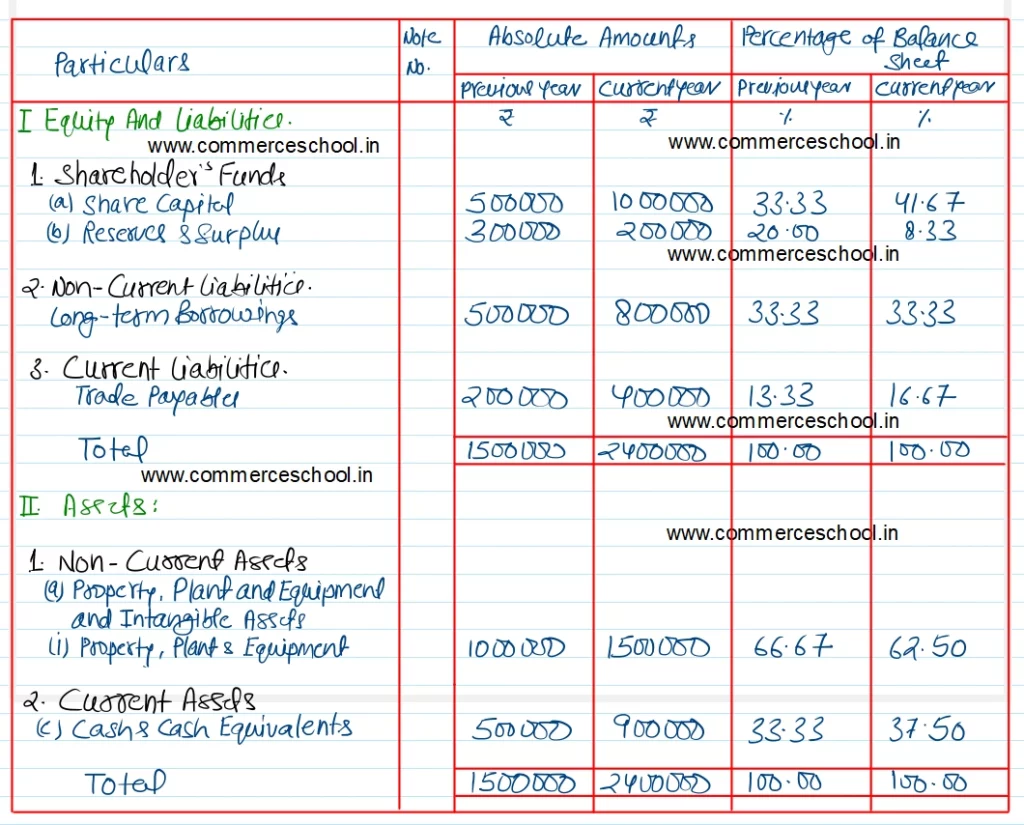 Particulars Note No. Absolute Amounts Percentage of Balance Sheet
Previous year Current year Previous year Current year
I Equity And Liabilities. ₹ ₹ % %
www.commerceschool.in www.commerceschool.in
1. Shareholder's Funds
(a) Share Capital 500000 1000000 33.33 41.67
(b) Reserves & Surplus 300000 200000 20.00 8.33
www.commerceschool.in
2. Non-Current Liabilities.
Long-term Borrowings 500000 800000 33.33 33.33
3. Current Liabilities.
Trade Payables 200000 400000 13.33 16.67
www.commerceschool.in
Total 1500000 2400000 100.00 100.00
www.commerceschool.in
II. Assets:
www.commerceschool.in
1. Non-Current Assets
(a) Property, Plant and Equipment
and Intangible Assets
(i) Property, Plant & Equipment 1000000 1500000 66.67 62.50
2. Current Assets
(c) Cash & Cash Equivalents 500000 900000 33.33 37.50
Total 1500000 2400000 100.00 100.00